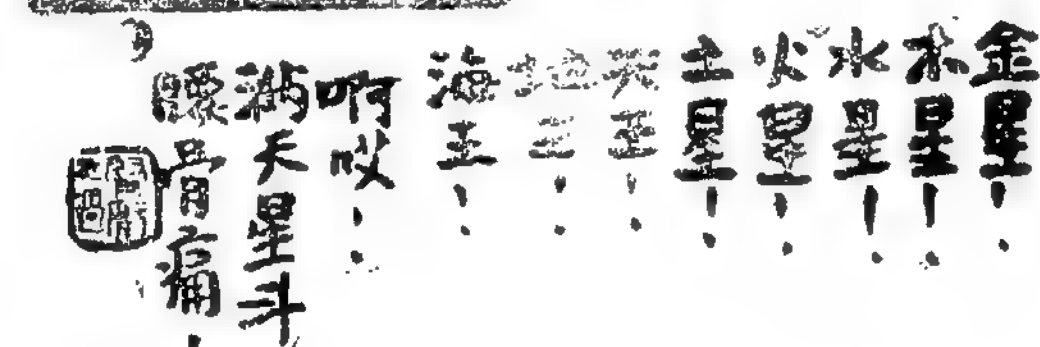 金星！
木星！
水星！
火星！
土星！
天王！
地王！
海王！
啊哎！
滿天星斗
腰骨痛！